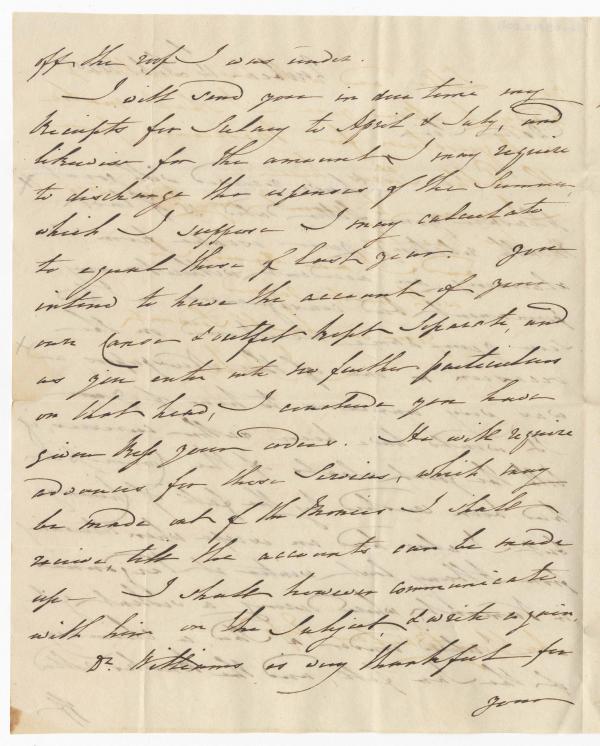 off the roof I was under.
I will send you in due time my
Receipts for Salary to April & July, and
likewise for the amount I may require
to discharge the expenses of the Summer,
which I suppose I may calculate
to equal those of last year. You
intend to have the account of your
own Canoe & outfit kept separate, and
as you enter into no further particulars
on that head, I conclude you have
given your orders. He will require
advances for these Services, which may
be made out of the Monies I shall
receive, till the accounts can be made
up — I shall however communicate
with him on the Subject, & write again.
Dr. Williams is very thankful for
your